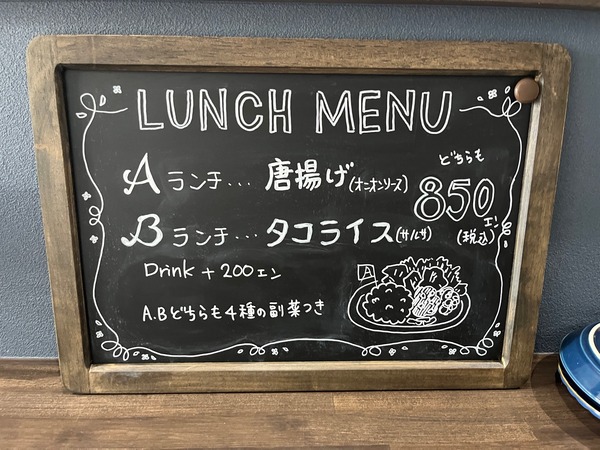 LUNCH MENU
Aランチ... 唐揚げ(オニオンソース)
Bランチ... タコライス(サルサ)
どちらも
850エン
(税込)
Drink + 200エン
A.Bどちらも4種の副菜つき
A